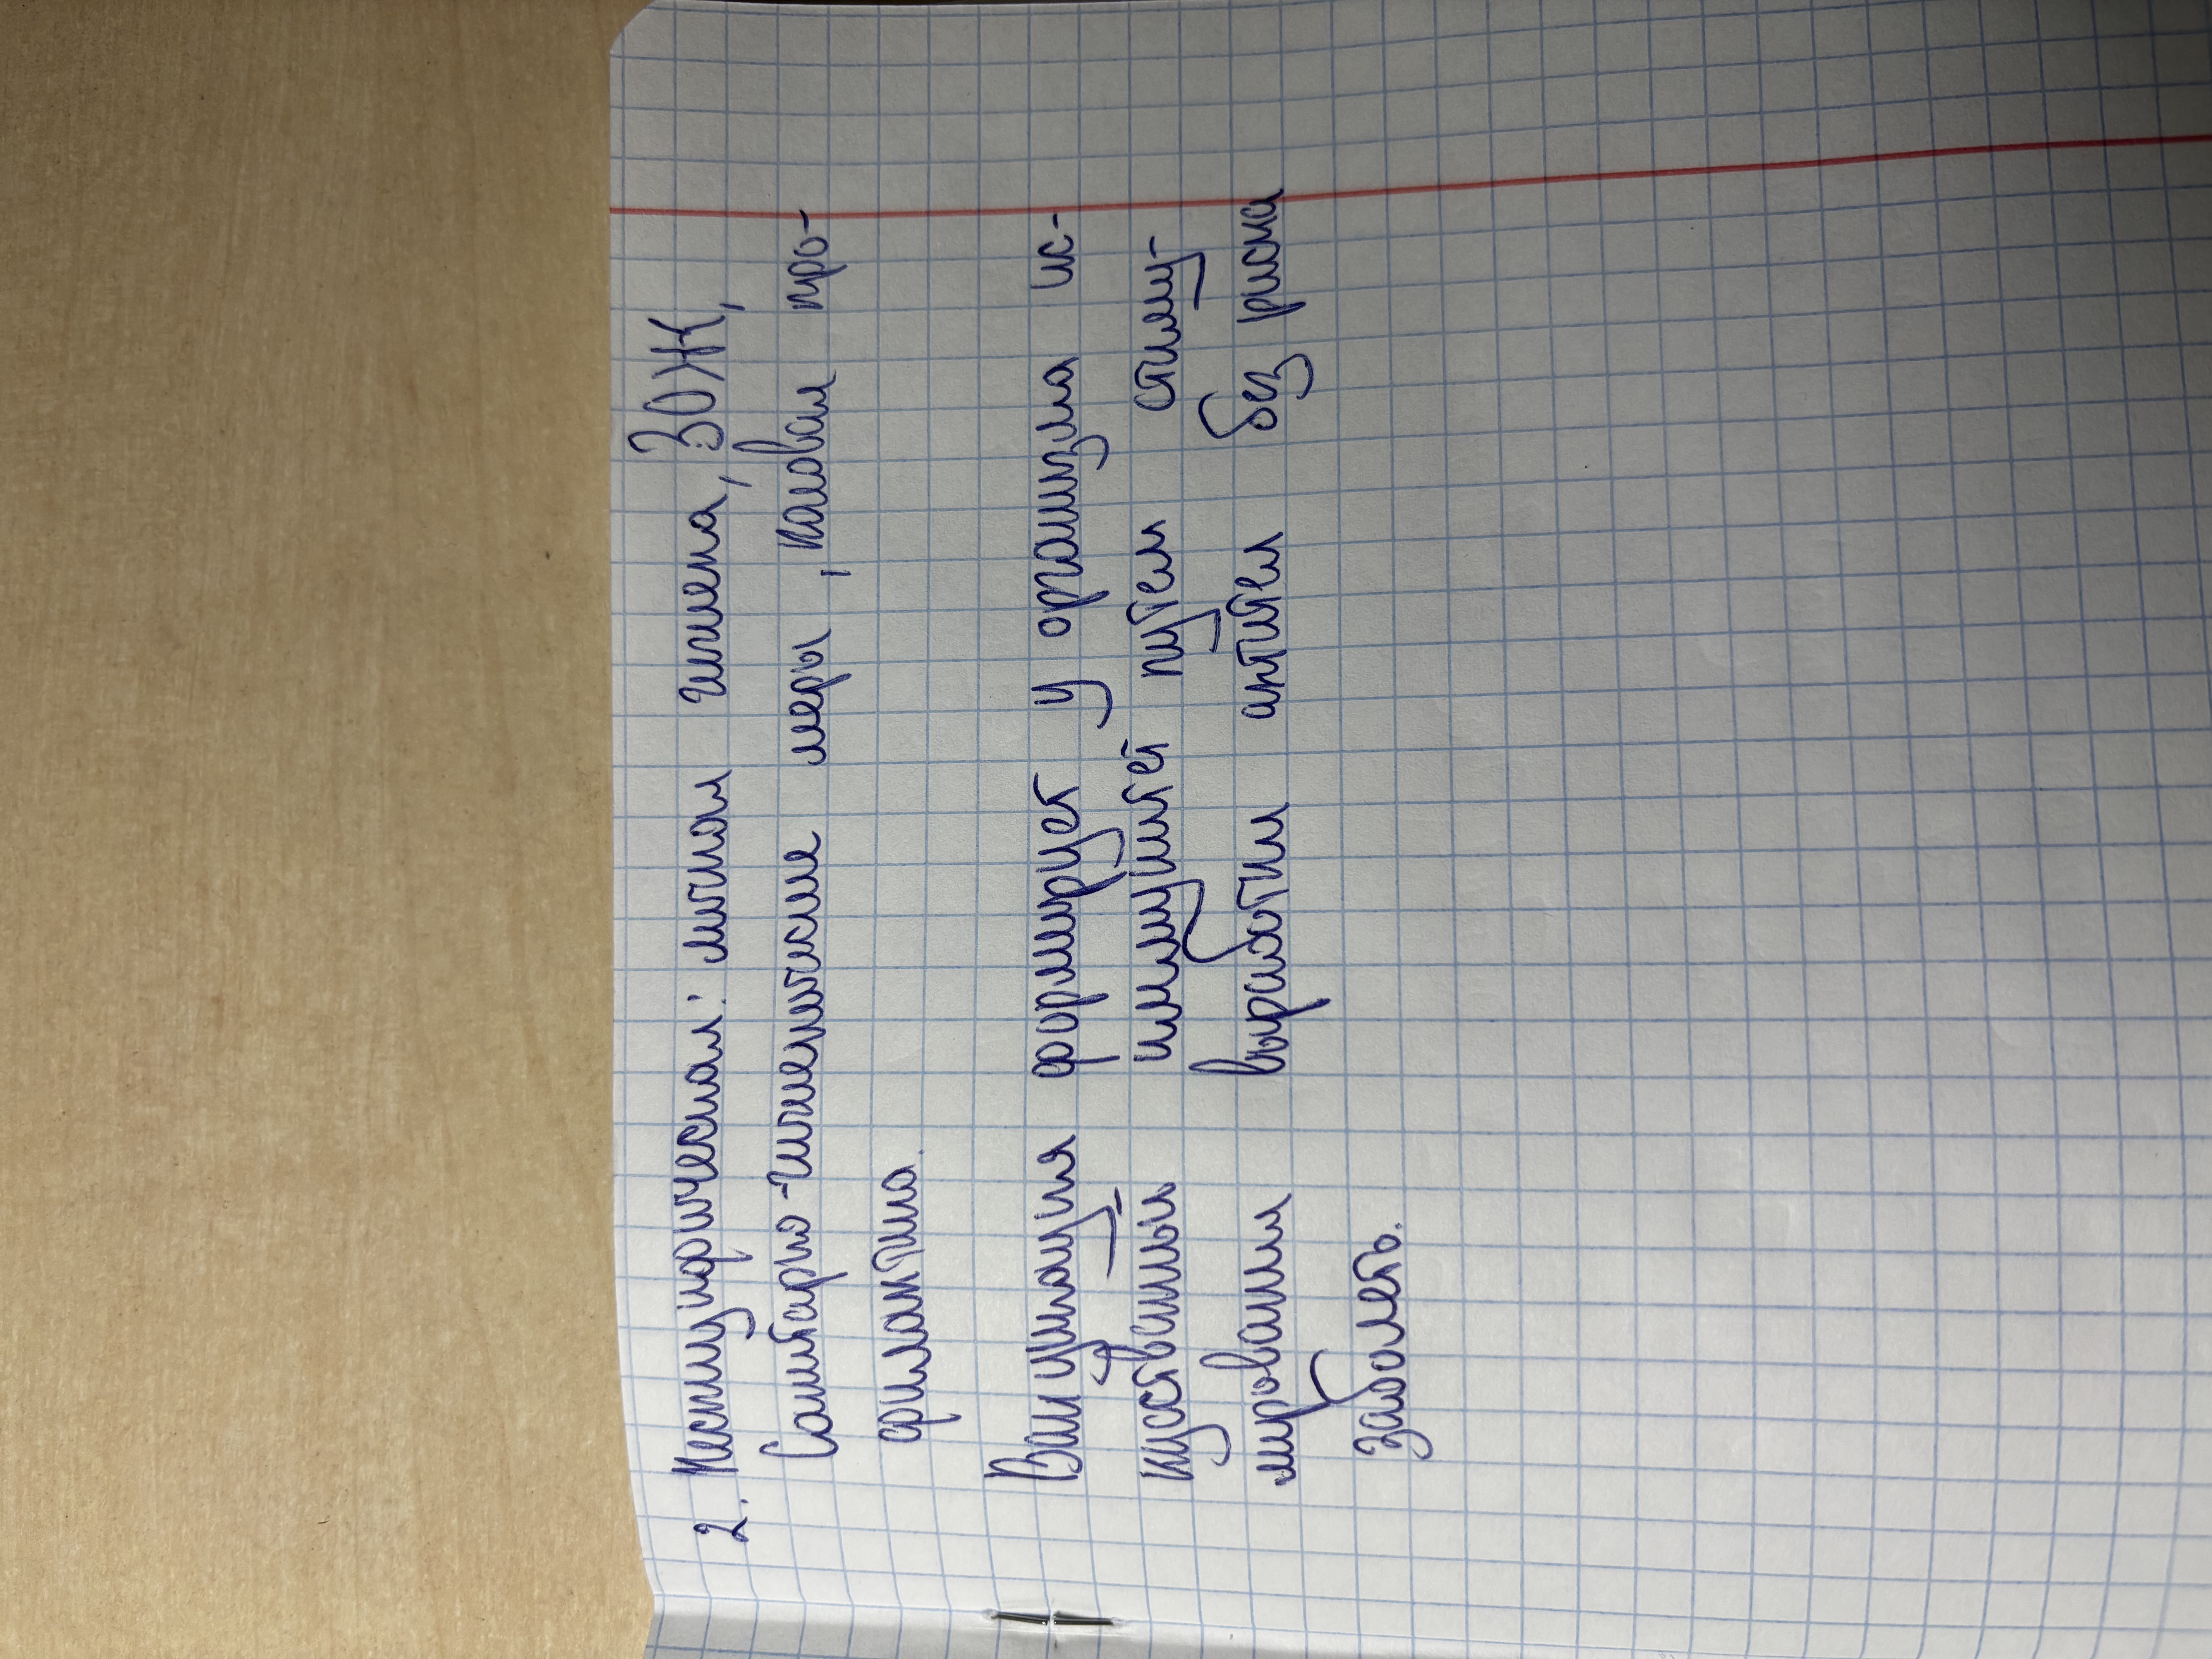 2. Неспецифическая: личная гигиена, ЗОЖ,
Санитарно-гигиенические меры, кашевая про-
филактика.
Вакцинация формирует у организма ис-
кусственный иммунитет путем стиму-
лирования выработки антител без риска
заболеть.